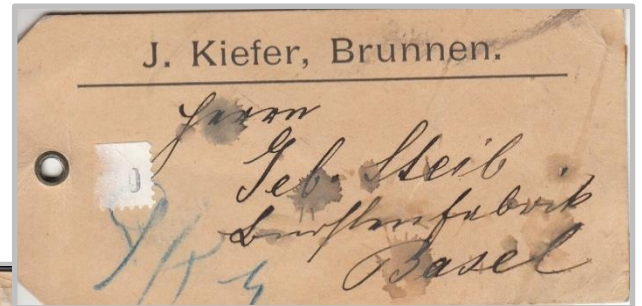 J. Kiefer, Brunnen.
Herrn
Geb. Steib
Bürstenfabrik
Basel
0